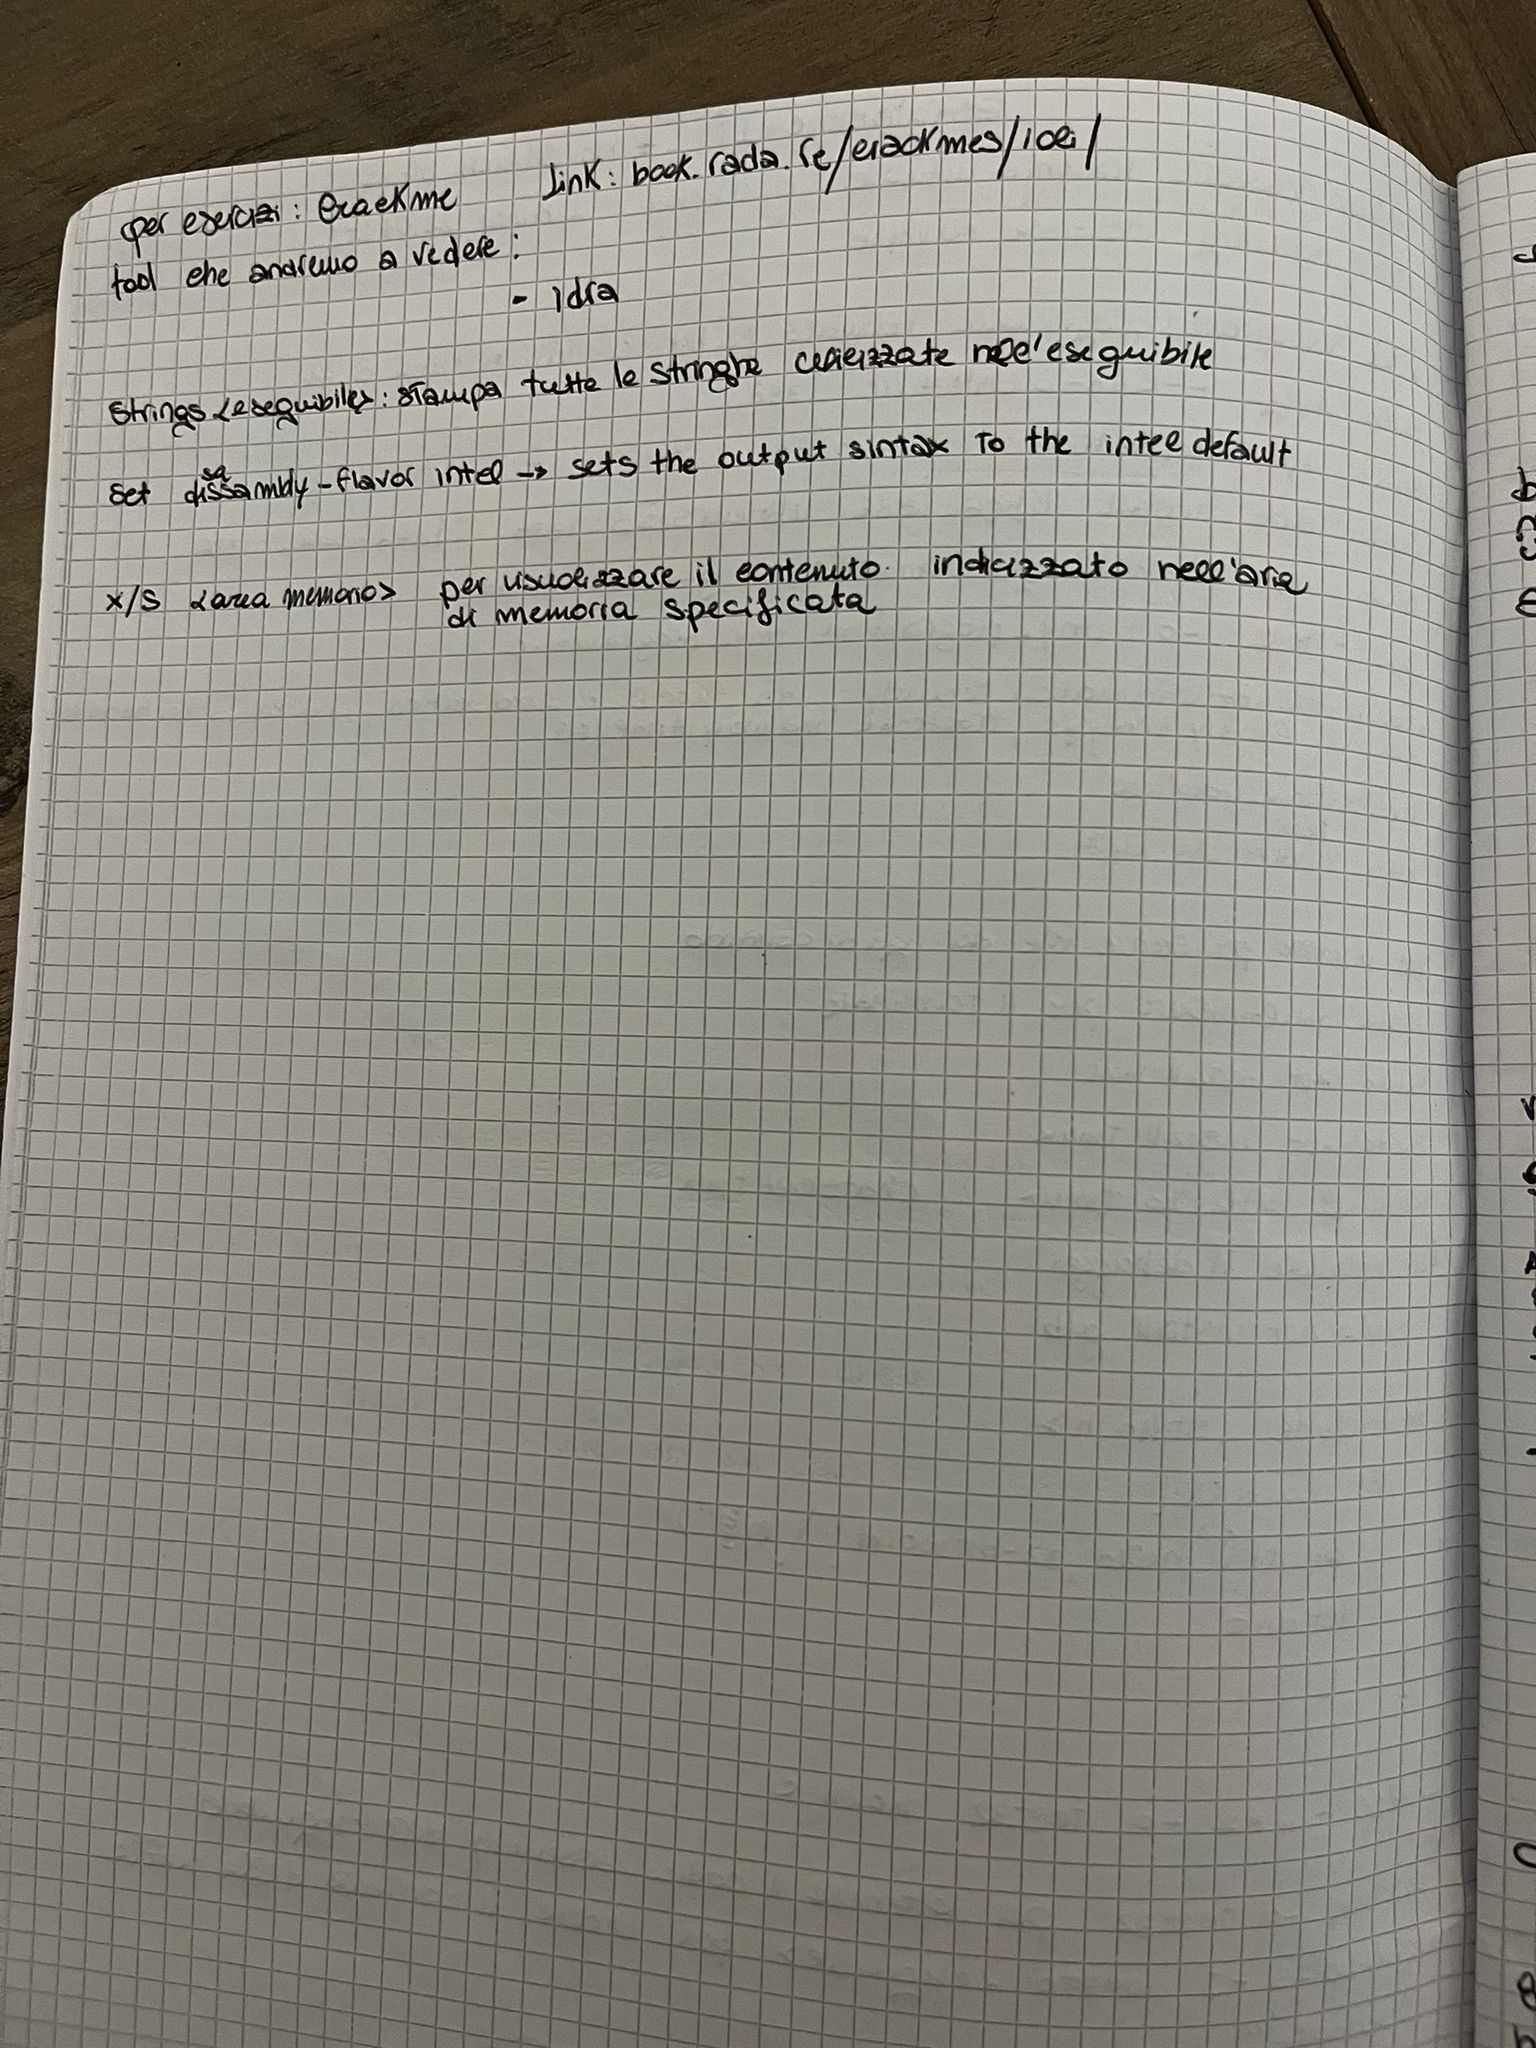 per esercizi: Crackme link: book.rada.re/crackmes/ioli/
tool che andremo a vedere:
- idra
strings <eseguibile>: stampa tutte le stringhe utilizzate nell'eseguibile
set disassambly-flavor intel → sets the output sintax to the intel default
x/s <area memoria> per visualizzare il contenuto indicizzato nell'aria
di memoria specificata